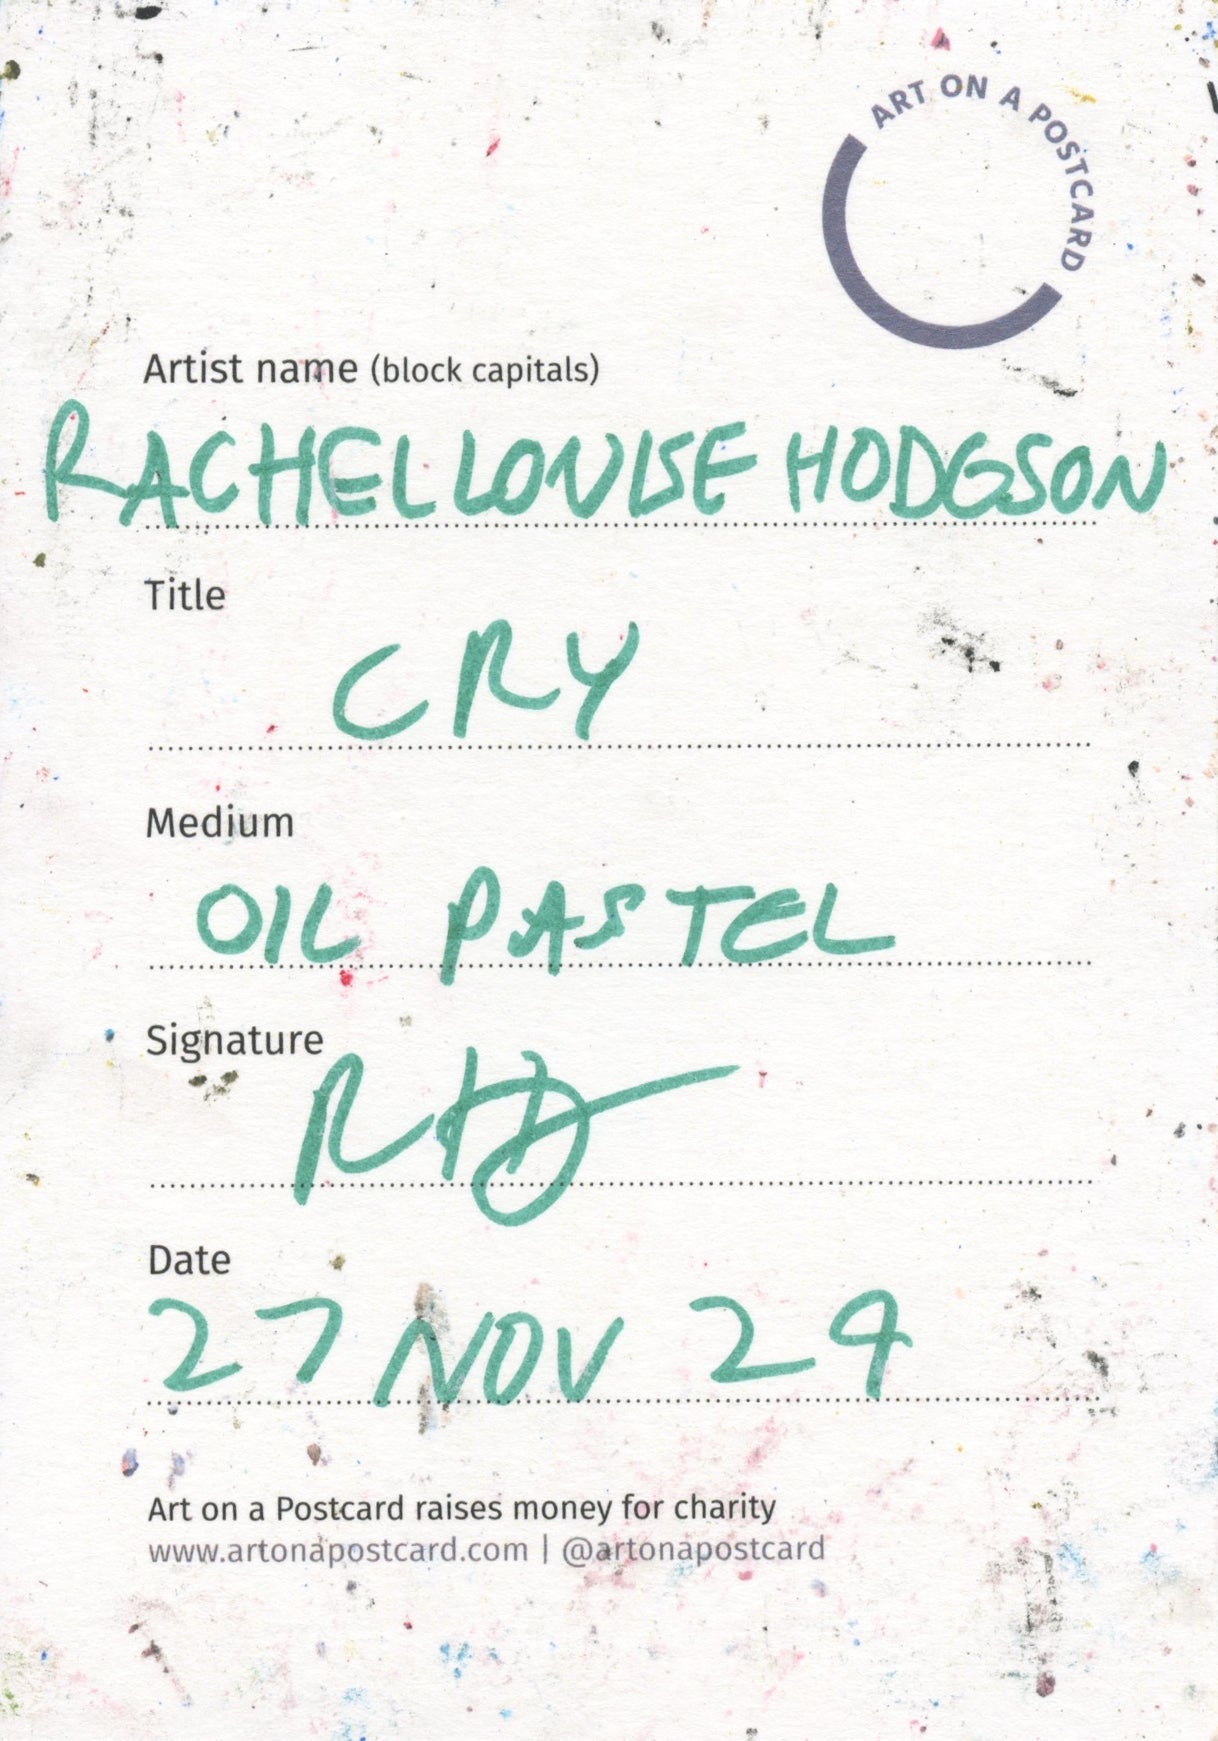 ART ON A POSTCARD
Artist name (block capitals)
RACHEL LOUISE HODGSON
Title
CRY
Medium
OIL PASTEL
Signature
RH
Date
27 NOV 24
Art on a Postcard raises money for charity
www.artonapostcard.com | @artonapostcard